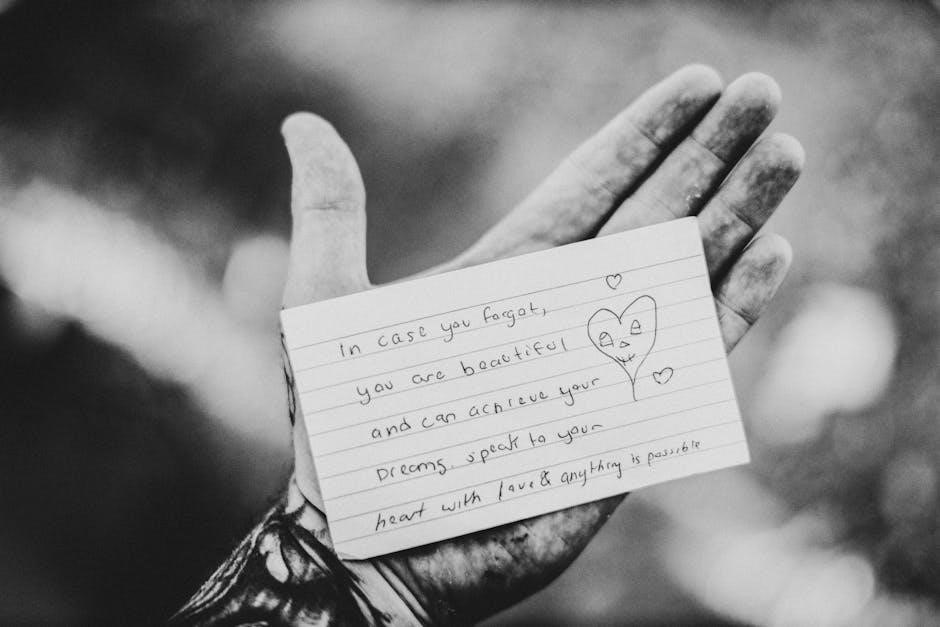 In case you forgot,
you are beautiful
and can achieve your
Dreams. speak to your
heart with love & anything is possible